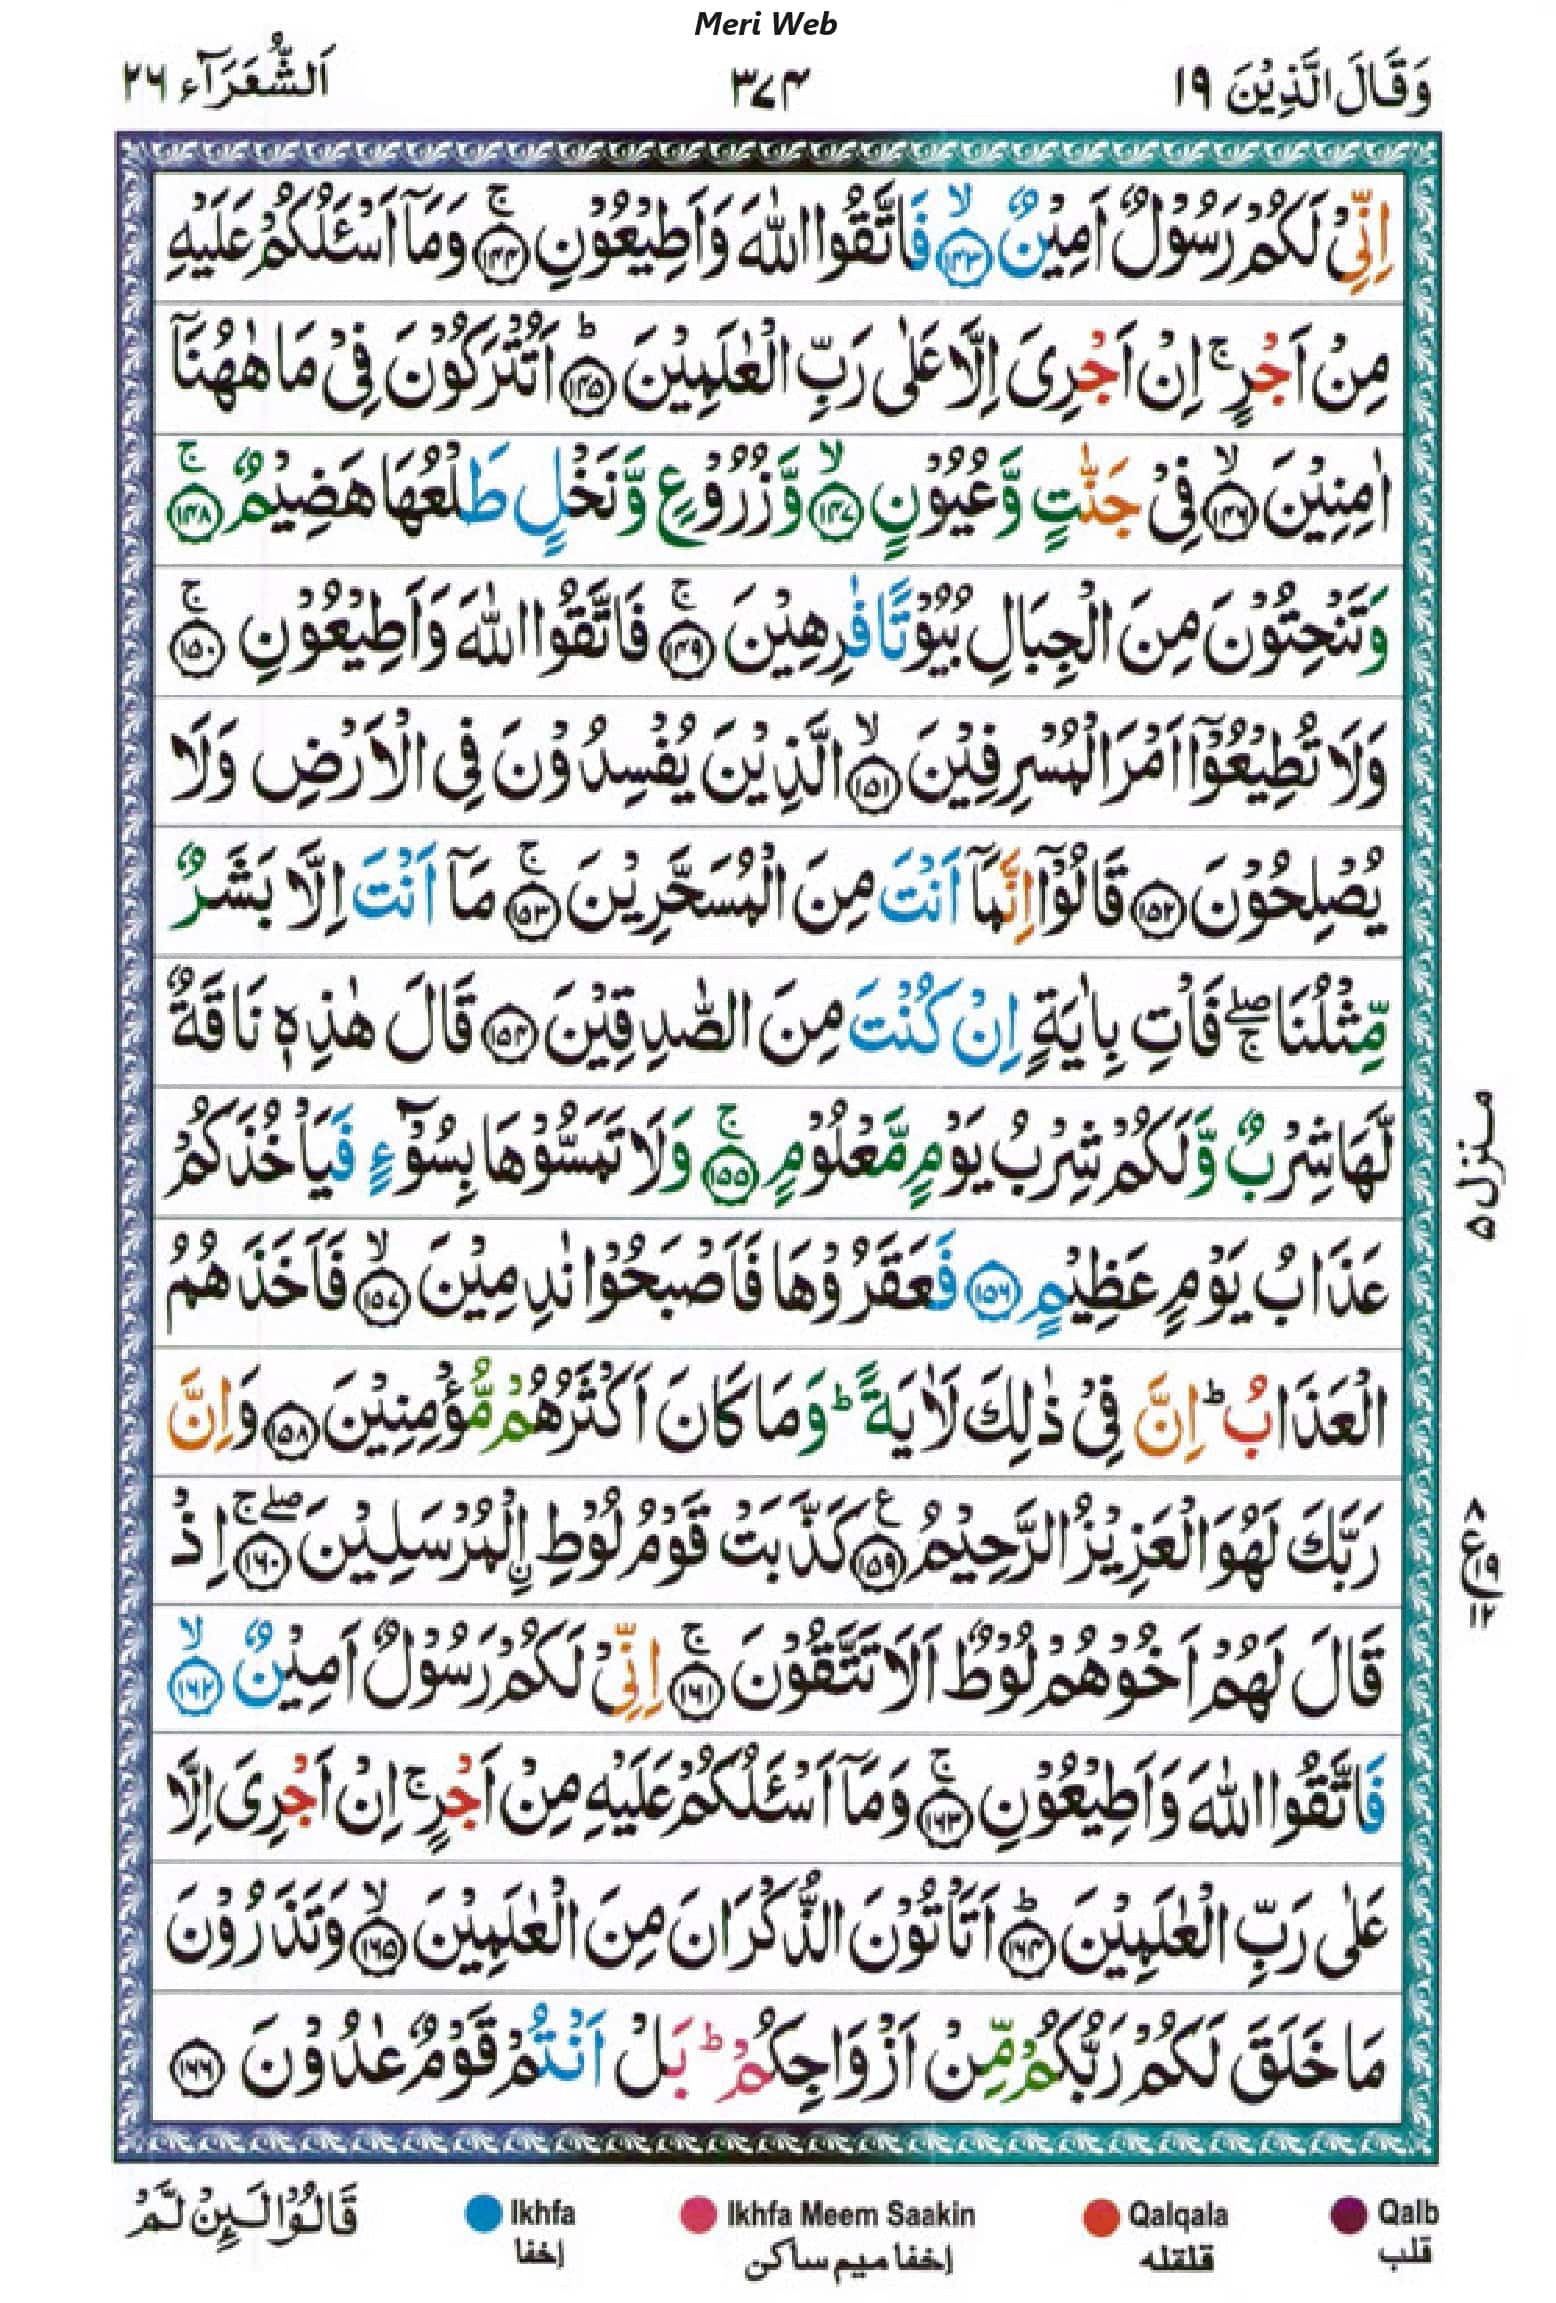 Meri Web
وَقَالَ الَّذِيْنَ ١٩
٣٧٤
اَلشُّعَرَآء ٢٦
اِنِّىْ لَكُمْ رَسُوْلٌ اَمِيْنٌ ۙ‏﴿۱۴۳﴾ فَاتَّقُوا اللّٰهَ وَاَطِيْعُوْنِ​ۚ‏﴿۱۴۴﴾ وَمَاۤ اَسْئَـلُكُمْ عَلَيْهِ
مِنْ اَجْرٍ​ۚ اِنْ اَجْرِىَ اِلَّا عَلٰى رَبِّ الْعٰلَمِيْنَؕ‏﴿۱۴۵﴾ اَتُتْرَكُوْنَ فِىْ مَا هٰهُنَاۤ
اٰمِنِيْنَۙ‏﴿۱۴۶﴾ فِىْ جَنّٰتٍ وَّعُيُوْنٍۙ‏﴿۱۴۷﴾ وَّزُرُوْعٍ وَّنَخْلٍ طَلْعُهَا هَضِيْمٌ​ۚ‏﴿۱۴۸﴾
وَتَنْحِتُوْنَ مِنَ الْجِبَالِ بُيُوْتًا فٰرِهِيْنَ​ۚ‏﴿۱۴۹﴾ فَاتَّقُوا اللّٰهَ وَاَطِيْعُوْنِ​ۚ‏﴿۱۵۰﴾
وَلَا تُطِيْعُوْۤا اَمْرَ الْمُسْرِفِيْنَۙ‏﴿۱۵۱﴾ الَّذِيْنَ يُفْسِدُوْنَ فِى الْاَرْضِ وَلَا
يُصْلِحُوْنَ‏﴿۱۵۲﴾ قَالُوْۤا اِنَّمَاۤ اَنْتَ مِنَ الْمُسَحَّرِيْنَ​ۚ‏﴿۱۵۳﴾ مَاۤ اَنْتَ اِلَّا بَشَرٌ
مِّثْلُنَا ​ۖۚ فَاْتِ بِاٰيَةٍ اِنْ كُنْتَ مِنَ الصّٰدِقِيْنَ‏﴿۱۵۴﴾ قَالَ هٰذِهٖ نَاقَةٌ
لَّهَا شِرْبٌ وَّلَكُمْ شِرْبُ يَوْمٍ مَّعْلُوْمٍ​ۚ‏﴿۱۵۵﴾ وَلَا تَمَسُّوْهَا بِسُوْٓءٍ فَيَاْخُذَكُمْ
عَذَابُ يَوْمٍ عَظِيْمٍ‏﴿۱۵۶﴾ فَعَقَرُوْهَا فَاَصْبَحُوْا نٰدِمِيْنَۙ‏﴿۱۵۷﴾ فَاَخَذَهُمُ
الْعَذَابُ​ؕ اِنَّ فِىْ ذٰ لِكَ لَاَيَةً​ؕ وَمَا كَانَ اَكْثَرُهُمْ مُّؤْمِنِيْنَ‏﴿۱۵۸﴾ وَاِنَّ
رَبَّكَ لَهُوَ الْعَزِيْزُ الرَّحِيْمُ‏﴿۱۵۹﴾ۧ كَذَّبَتْ قَوْمُ لُوْطٍ اۨلْمُرْسَلِيْنَ​ ۖ​ۚ‏﴿۱۶۰﴾ اِذْ
قَالَ لَهُمْ اَخُوْهُمْ لُوْطٌ اَلَا تَتَّقُوْنَ​ۚ‏﴿۱۶۱﴾ اِنِّىْ لَـكُمْ رَسُوْلٌ اَمِيْنٌۙ‏﴿۱۶۲﴾
فَاتَّقُوا اللّٰهَ وَاَطِيْعُوْنِ​ۚ‏﴿۱۶۳﴾ وَمَاۤ اَسْئَـلُكُمْ عَلَيْهِ مِنْ اَجْرٍ​ۚ اِنْ اَجْرِىَ اِلَّا
عَلٰى رَبِّ الْعٰلَمِيْنَؕ‏﴿۱۶۴﴾ اَتَاْتُوْنَ الذُّكْرَانَ مِنَ الْعٰلَمِيْنَۙ‏﴿۱۶۵﴾ وَ تَذَرُوْنَ
مَا خَلَقَ لَـكُمْ رَبُّكُمْ مِّنْ اَزْوَاجِكُمْ​ؕ بَلْ اَنْتُمْ قَوْمٌ عٰدُوْنَ‏﴿۱۶۶﴾
منزل ۵
ع ٨ ١٩ ١٢
قَالُوْا لَٮِٕنْ لَّمْ
Ikhfa
إخفا
Ikhfa Meem Saakin
إخفا ميم ساكن
Qalqala
قلقله
Qalb
قلب